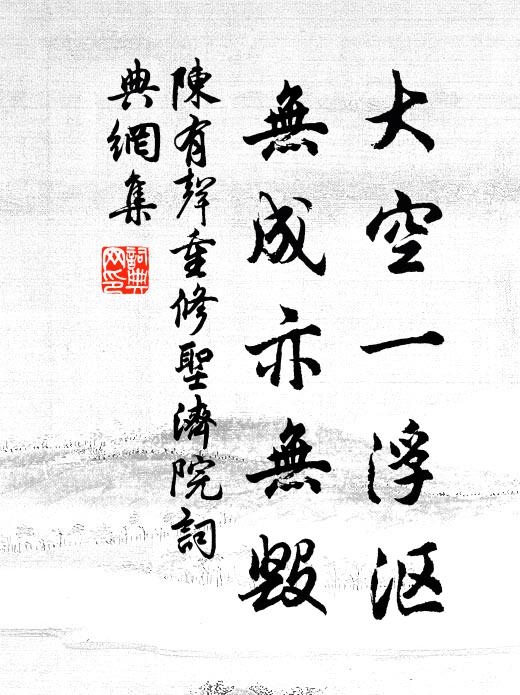 大空一浮沤
無成亦無毀
陳有聲重修聖濟院詞
典網集
詞典網印